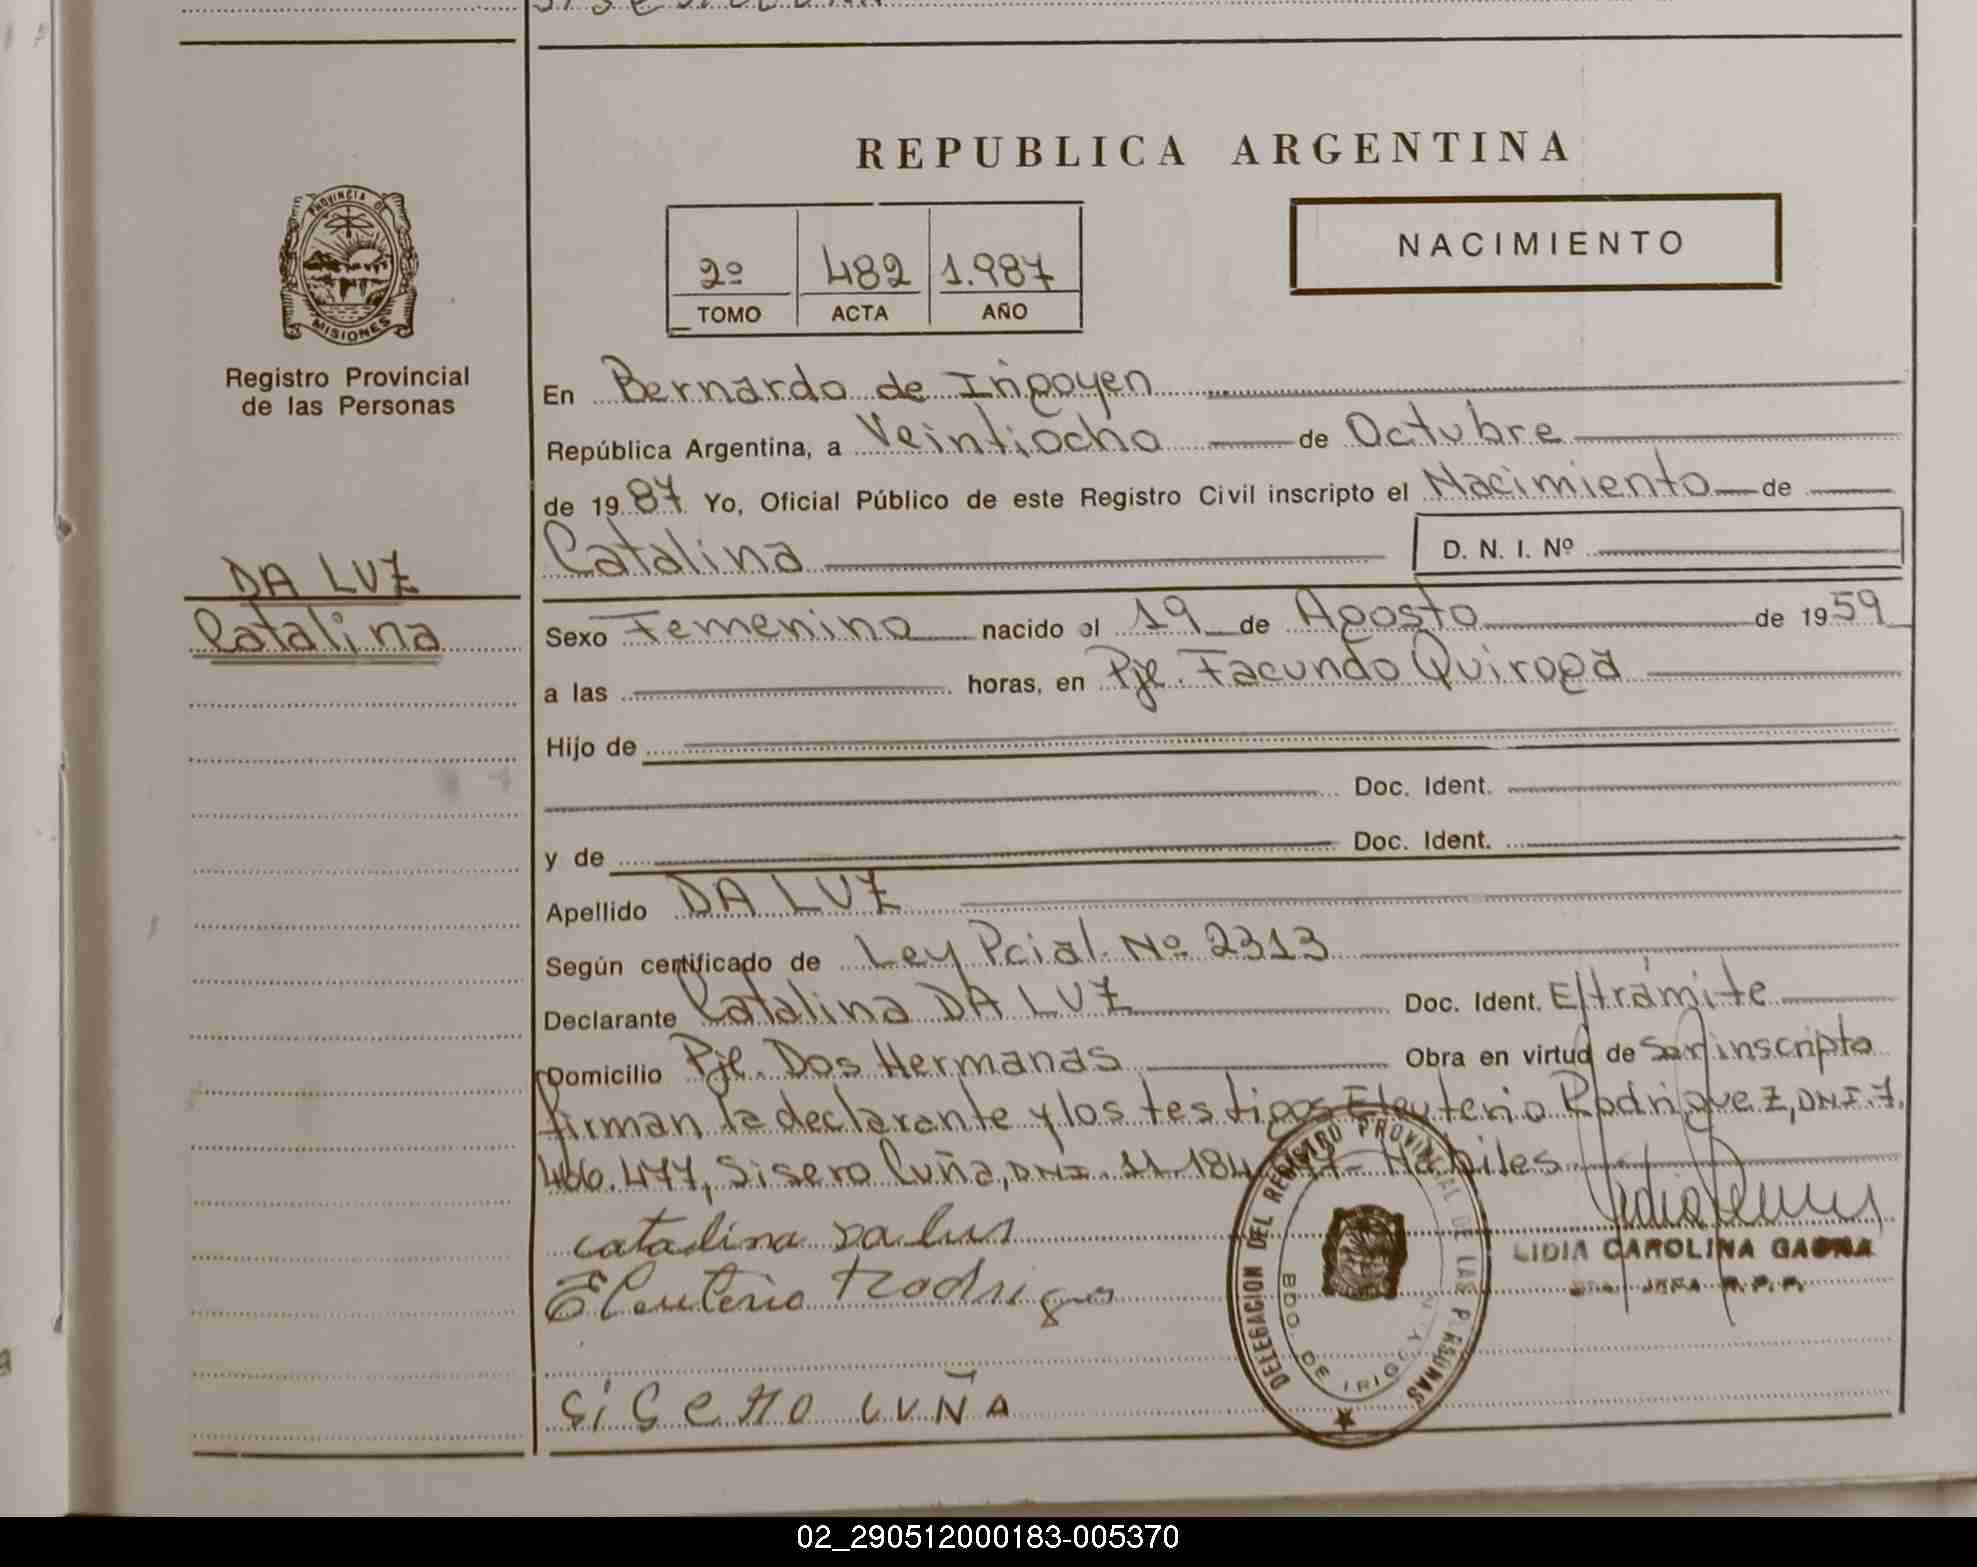 REPUBLICA ARGENTINA
PROVINCIA DE
MISIONES
Registro Provincial
de las Personas
DA LUZ
Catalina
2º 482 1.987
TOMO ACTA AÑO
NACIMIENTO
En Bernardo de Irigoyen
República Argentina, a Veintiocho de Octubre
de 1987 Yo, Oficial Público de este Registro Civil inscripto el Nacimiento de
Catalina D. N. I. Nº
Sexo Femenino nacido el 19 de Agosto de 1959
a las horas, en Pje. Facundo Quiroga
Hijo de
Doc. Ident.
y de Doc. Ident.
Apellido DA LUZ
Según certificado de Ley Pcial. Nº 2313
Declarante Catalina DA LUZ Doc. Ident. E/trámite
Domicilio Pje. Dos Hermanas Obra en virtud de Ser inscripta
firman la declarante y los testigos Eleuterio Rodriguez, DNI. 7.
466.477, Sisero Cuña, DNI. 11.184 Habiles
catalina da lus
Eleuterio Rodrigues
LIDIA CAROLINA GAONA
JEFA R.P.P.
Sisero CUÑA
DELEGACION DEL REGISTRO PROVINCIAL DE LAS PERSONAS
BDO. DE IRIGOYEN
02_290512000183-005370